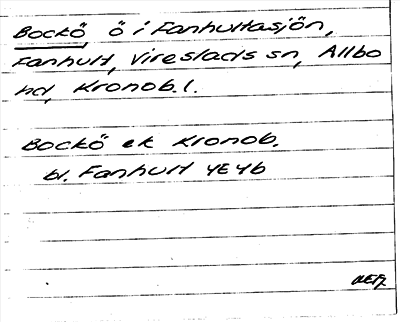 Bockö, ö i Fanhultasjön,
Fanhult, Virestads sn, Allbo
hd, Kronob. l.
Bockö ek Kronob.
bl. Fanhult 4E4b